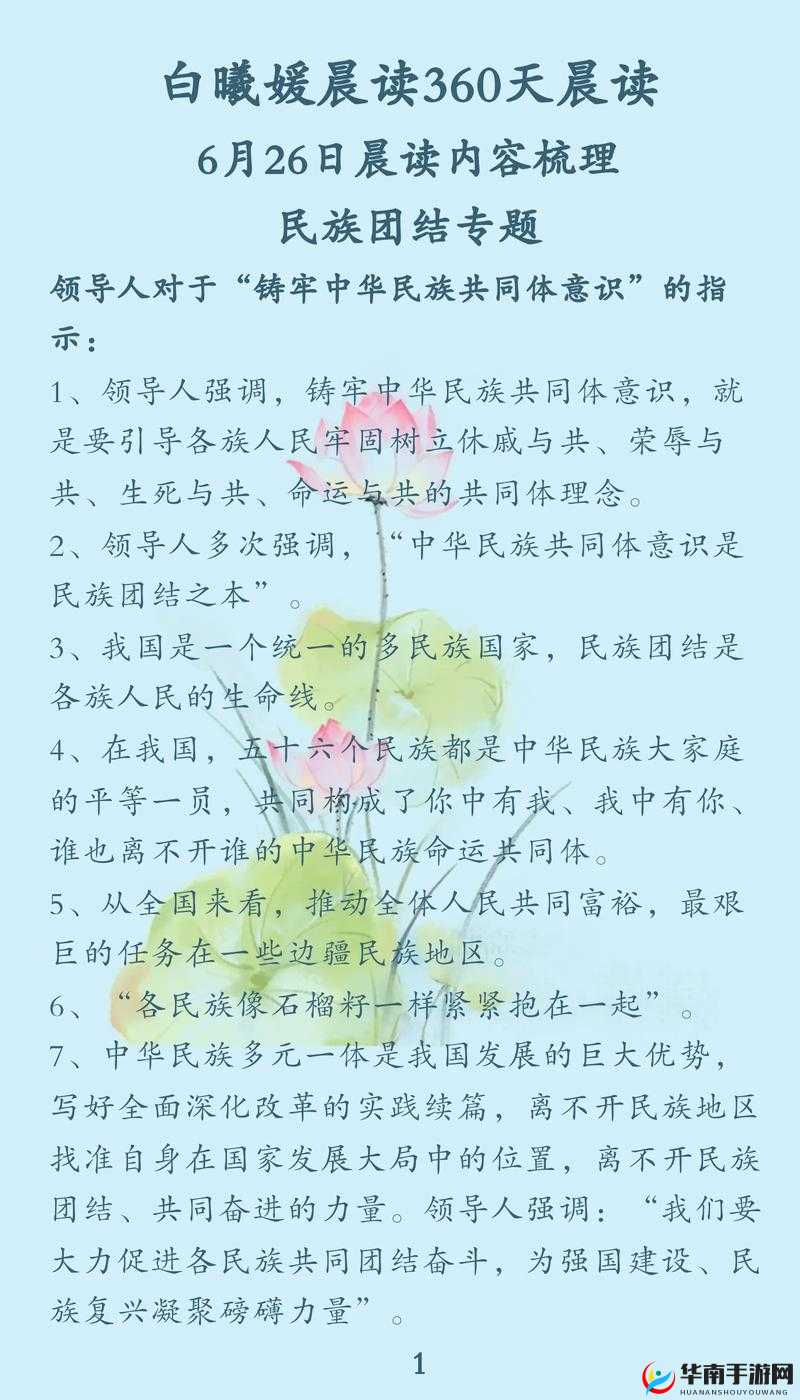 白曦媛晨读360天晨读
6月26日晨读内容梳理
民族团结专题
领导人对于“铸牢中华民族共同体意识”的指
示：
1、领导人强调，铸牢中华民族共同体意识，就
是要引导各族人民牢固树立休戚与共、荣辱与
共、生死与共、命运与共的共同体理念。
2、领导人多次强调，“中华民族共同体意识是
民族团结之本”。
3、我国是一个统一的多民族国家，民族团结是
各族人民的生命线。
4、在我国，五十六个民族都是中华民族大家庭
的平等一员，共同构成了你中有我、我中有你、
谁也离不开谁的中华民族命运共同体。
5、从全国来看，推动全体人民共同富裕，最艰
巨的任务在一些边疆民族地区。
6、“各民族像石榴籽一样紧紧抱在一起”。
7、中华民族多元一体是我国发展的巨大优势，
写好全面深化改革的实践续篇，离不开民族地区
找准自身在国家发展大局中的位置，离不开民族
团结、共同奋进的力量。领导人强调：“我们要
大力促进各民族共同团结奋斗，为强国建设、民
族复兴凝聚磅礴力量”。
1
华南手游网
HUANANSHOUYOUWANG